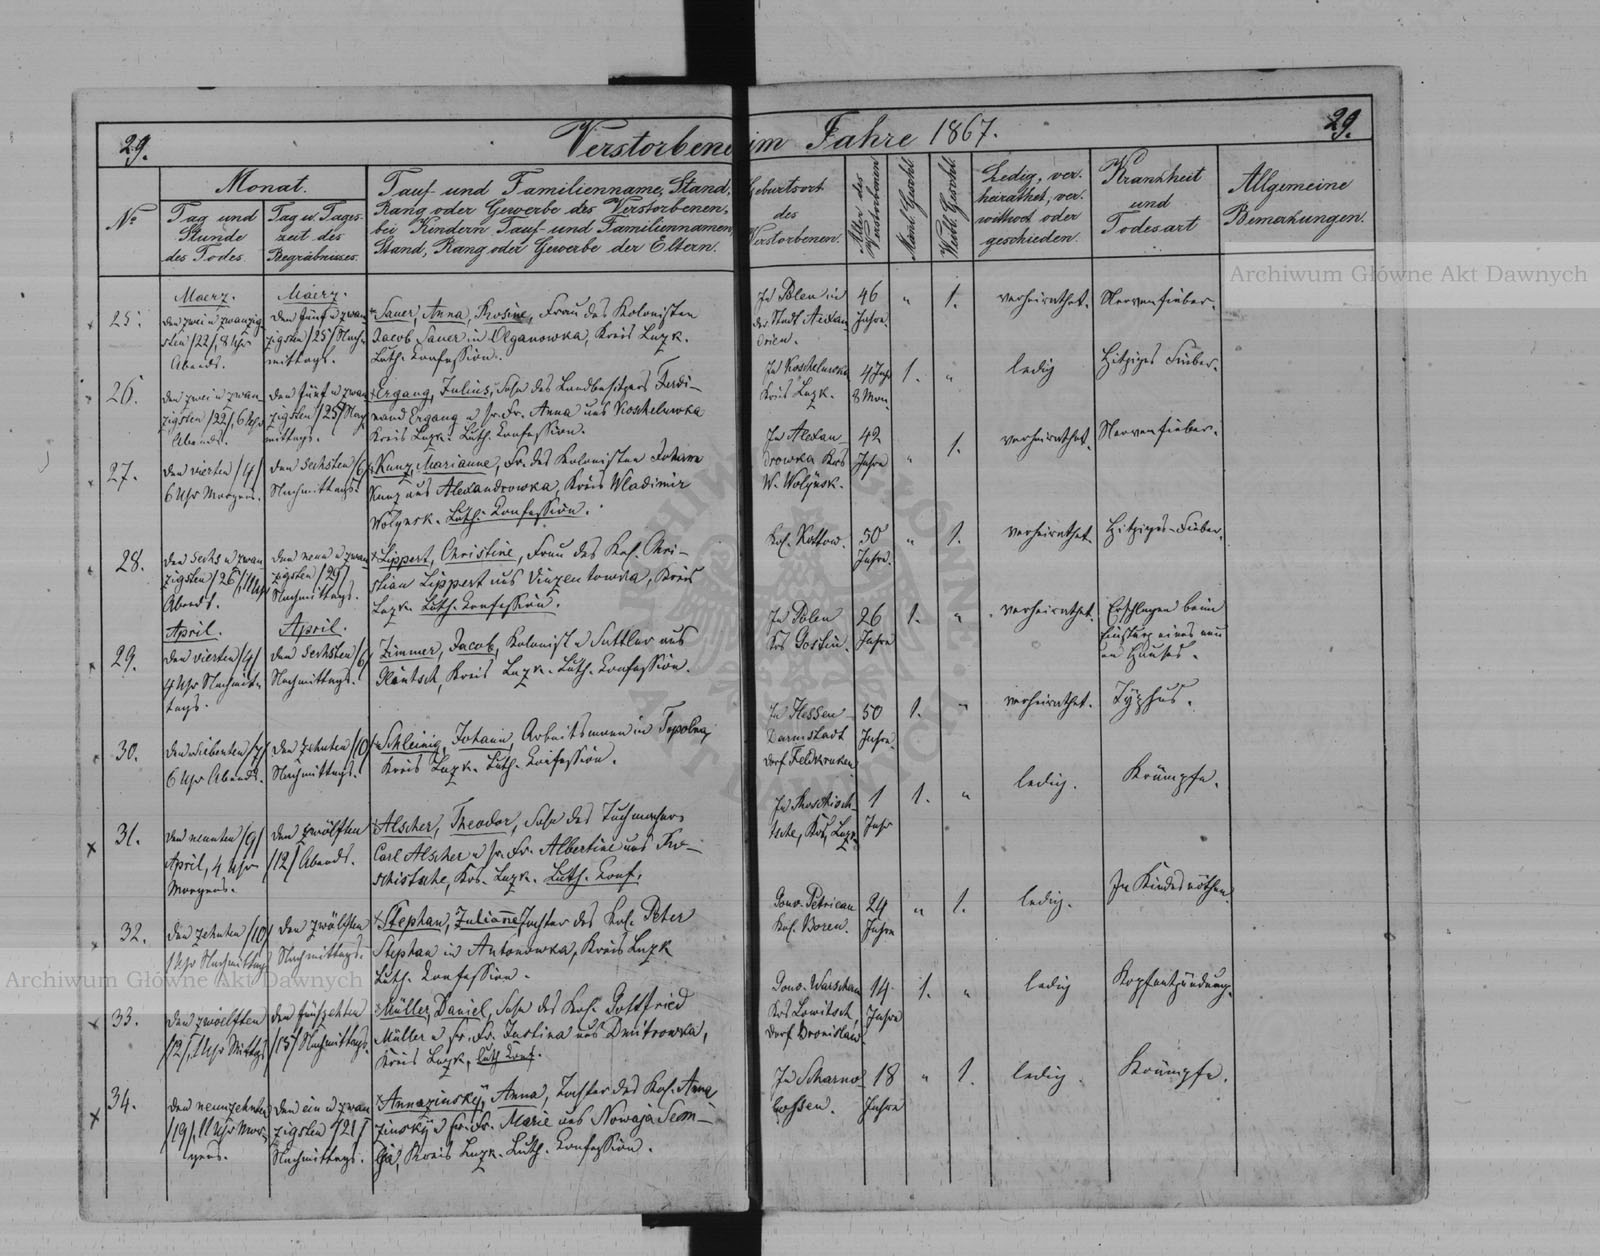 29.
Verstorbene im Jahre 1867.
29.
No
Monat.
Tag und
Stunde
des Todes.
Tag u. Tages-
zeit des
Begräbnisses.
Tauf- und Familienname, Stand,
Rang oder Gewerbe des Verstorbenen,
bei Kindern Tauf- und Familiennamen,
Stand, Rang oder Gewerbe der Eltern.
Geburtsort
des
Verstorbenen.
Alter des
Verstorbenen
Männl. Geschl.
Weibl. Geschl.
Ledig, ver-
heirathet, ver-
wittwet oder
geschieden.
Krankheit
und
Todesart
Allgemeine
Bemerkungen.
Archiwum Główne Akt Dawnych
25.
Maerz.
den zwei u zwanzig-
sten /22/, 8 Uhr
Abends.
Maerz.
den fünf u zwan-
zigsten /25/ Nach-
mittags.
Sauer, Anna, Rosine, Frau des Kolonisten
Jacob Sauer in Olganowka, Kreis Luzk.
Luth. Confession.
In Polen in
der Stadt Alexan-
drien.
46
Jahre.
"
1.
verheirathet.
Nervenfieber.
26.
den zwei u zwan-
zigsten /22/, 6 Uhr
Abends.
den fünf u zwan-
zigsten /25/ Nach-
mittags.
Ergang, Julius, Sohn des Landbesitzers Ferdi-
nand Ergang u sr. Fr. Anna aus Koschelowka
Kreis Luzk. Luth. Confession.
In Koschelowka
Kreis Luzk.
4 Jahr
8 Mon.
1.
"
ledig
Hitziges Fieber.
27.
den vierten /4/
6 Uhr Morgens.
den sechsten /6/
Nachmittags.
Kunz, Marianne, Fr. des Kolonisten Johann
Kunz aus Alexandrowka, Kreis Wladimir
Wolynsk. Luth. Confession.
In Alexan-
drowka Krs
W. Wolynsk.
42
Jahre
"
1.
verheirathet.
Nervenfieber.
28.
den sechs u zwan-
zigsten /26/, 11 Uhr
Abends.
den neun u zwan-
zigsten /29/
Nachmittags.
Lippert, Christine, Frau des Kol. Chri-
stian Lippert aus Vinzentowka, Kreis
Luzk. Luth. Confession.
Kol. Rattow.
50
Jahre.
"
1.
verheirathet.
Hitziges-Fieber.
29.
April.
den vierten /4/
4 Uhr Nachmit-
tags.
April.
den sechsten /6/
Nachmittags.
Zimmer, Jacob, Kolonist u Sattler aus
Kreis Luzk. Luth. Confession.
In Polen
Krs Gostin.
26
Jahre
1.
"
verheirathet.
Erschlagen beim
Einsturz eines neu
en Hauses.
30.
den siebenten /7/
6 Uhr Abends.
den zehnten /10/
Nachmittags.
Schleinig, Johann, Arbeitsmann in Topolna,
Kreis Luzk. Luth. Confession.
In Hessen-
Darmstadt
Dorf Feldkruken
50
Jahre.
1.
"
verheirathet.
Typhus.
31.
den neunten /9/
April, 4 Uhr
Morgens.
den zwölften
/12/ Abends.
Alscher, Theodor, Sohn des Tuchmachers
Carl Alscher u sr. Fr. Albertine aus Ro-
schistsche, Krs. Luzk. Luth. Conf.
In Roschisch-
tsche, Krs. Luzk.
1
Jahr
1.
"
ledig.
Krämpfe.
32.
den zehnten /10/
1 Uhr Nachmittags
den zwölften
Nachmittags.
Stephan, Julianne, Tochter des Kol. Peter
Stephan in Antonowka, Kreis Luzk
Luth. Confession.
Gouv. Petrican
Kol. Boren.
24
Jahre
"
1.
ledig.
In Kindesnöthen.
Archiwum Główne Akt Dawnych
33.
den zwölften
/12/, 1 Uhr Mittags
den fünfzehnten
/15/ Nachmittags.
Müller, Daniel, Sohn des Kol. Gottfried
Müller u sr. Fr. Justina aus Dmitrowka,
Kreis Luzk, Luth. Conf.
Gouv. Warschau
Krs Lowitsch,
Dorf Bronislaw.
14.
Jahre
1.
"
ledig
Kopfentzündung.
34.
den neunzehnten
/19/, 11 Uhr Mor-
gens.
den ein u zwan-
zigsten /21/
Nachmittags.
Annazinsky, Anna, Tochter des Kol. Anna-
zinsky u sr. Fr. Marie aus Nowaja Sem-
lja, Kreis Luzk. Luth. Confession.
In Scharno
18
Jahre
"
1.
ledig.
Krämpfe.